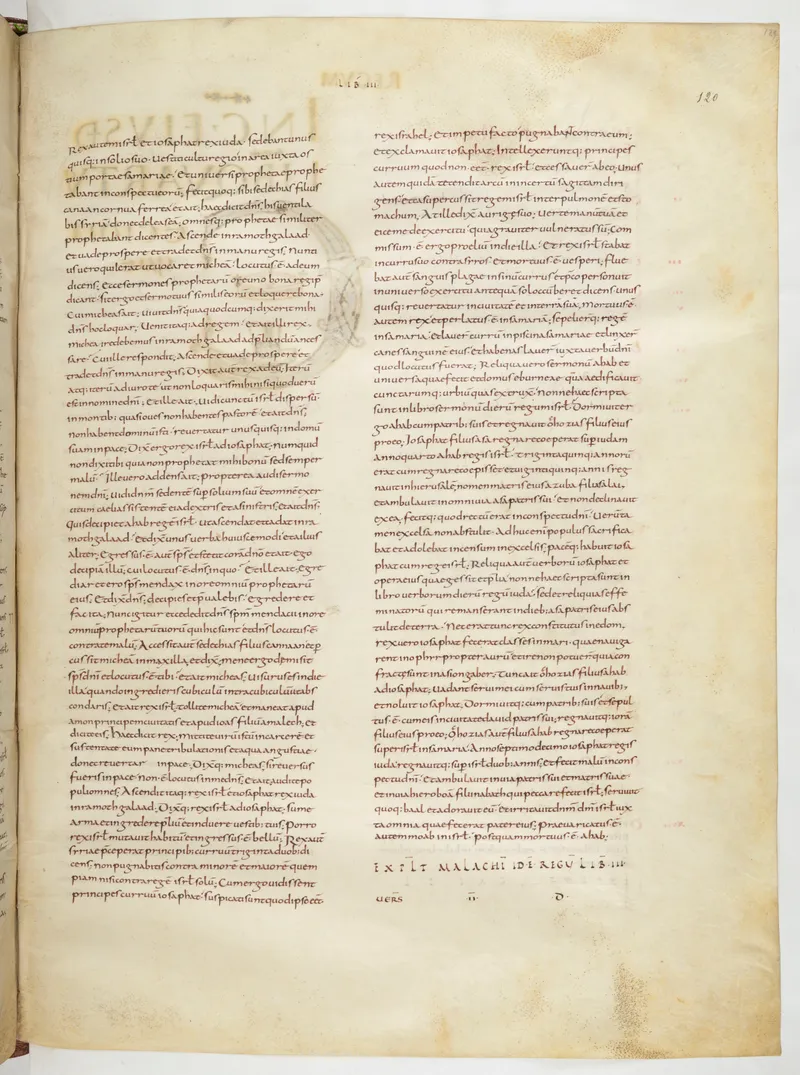 LIB III
120
Rex autem isrł et iosaphat rex iuda sedebant unus
quisq; in solio suo uestiti cultu regio in area iuxta os
tium portae samariae et uniuersi prophetae prophe
tabant in conspectu eorū, fecitquoq; sibi sedechias filius
chanaan cornua ferrea et ait, haec dicit dn̄s, his uentila
bis syriā donec deleas eā, omnesq; prophetae similiter
prophetabant dicentes Ascende in ramothgalaad
et uade prospere et tradet dn̄s in manu regis; Nunti
us uero qui ierat ut uocaret micheā locutus ē ad eum
dicens; Ecce sermones prophetarū ore uno bona regi p̄
dicant sit ergo et sermo tuus similis eorū et loquere bona
Cui micheas ait; uiuit dn̄s quia quodcumq; dixerit mihi
dn̄s hoc loquar; Uenit itaq; ad regem et ait illi rex
michea ire debemus in ramothgalaad ad pliandū an ces
sare; Cui ille respondit; Ascende et uade prospere et
tradet dn̄s in manu regis; Dixit aut rex ad eū; Iterū
atq; iterū adiuro te ut non loquaris mihi nisi quod uerū
est in nomine dn̄i; Et ille ait; Uidi cunctū isrł dispersū
in montib; quasi oues non habentes pastorē et ait dn̄s;
non habent dominū isti reuertatur unusquisq; in domū
suam in pace; Dix̄ ergo rex isrł ad iosaphat; numquid
non dixi tibi quia non prophetat mihi bonū sed semper
malū; Ille uero addens ait; propterea audi sermo
nem dn̄i; Uidi dn̄m sedentē sup solium suū et omnē exer
citum caeli assistentē ei a dextris et a sinistris; et ait dn̄s;
Quis decipiet ahab regē isrł ut ascendat et cadat in ra
mothgalaad et dix̄ unus uerba huiuscemodi et alius
aliter; Egressus ē aut sp̄s et stetit corā dn̄o et ait ego
decipiā illū; cui locutus ē dn̄s in quo et ille ait; egre
diar et ero sp̄s mendax in ore omniū prophetarū
eius; Et dix̄ dn̄s; decipies et p̄ualebis egredere et
fac ita; Nunc igitur ecce dedit dn̄s sp̄m mendacii in ore
omniū prophetarū tuorū qui hic sunt et dn̄s locutus ē
contra te malū; Accessit aut sedechias filius chanaan et p
cussit micheā in maxillā, et dix̄; mene ergo dimisit
sp̄s dn̄i et locutus ē tibi et ait micheas; Uisurus es in die
illa quando ingredieris cubiculū intra cubiculū ut abs
condaris; Et ait rex isrł tollite micheā et maneat apud
amon principem ciuitatis et apud ioas filiū amalech, et
dicite eis; haec dicit rex; mittite uirū istū in carcerē et
sustentate eum pane tribulationis et aqua angustiae
donec reuertar in pace; Dix̄q; micheas; si reuersus
fueris in pace non ē locutus in me dn̄s; Et ait; audite po
puli omnes; Ascendit itaq; rex isrł et iosaphat rex iuda
in ramothgalaad; Dix̄q; rex isrł ad iosaphat; sume
arma et ingredere pliū et induere uestib; tuis; Porro
rex isrł mutauit habitū et ingressus ē bellū; Rex aut
syriae p̄ceperat principib; curruū triginta duob; di
cens; non pugnabitis contra minorē et maiorē quem
piam nisi contra regē isrł solū; Cum ergo uidissent
principes curruū iosaphat suspicati sunt quod ipse eēt
rex israhel; Et impetu facto pugnabant contra eum;
et exclamauit iosaphat; Intellexeruntq; principes
curruum quod non eēt rex isrł et cessauer ab eo; Unus
autem quidā tetendit arcū in incertū sagittam diri
gens et casu percussit regem isrł inter pulmonē et sto
machum, At ille dix̄ aurigae suo; Uerte manū tuā et
eice me de exercitu quia grauiter uulneratus sū; Com
missum ē ergo proeliū in die illa et rex isrł stabat
in curru suo contra syros et mortuus ē uesperi; flue
bat aut sanguis plagae in sinū currus et p̄co personuit
in uniuerso exercitu antequā sol occūberet dicens unus
quisq; reuertatur in ciuitatē et in terrā suā; Mortuus ē
autem rex et perlatus ē in samariā; sepelierq; regē
in samaria et lauer currū in piscina samariae et linxer
canes sanguinē eius et habenas lauer iuxta uerbū dn̄i
quod locutus fuerat; Reliqua uero sermonū ahab et
uniuersa quae fecit et domus eburneae quā aedificauit
cunctarumq; urbiū quas extruxit nonne haec scripta
sunt in libro sermonū dierū regum isrł; Dormiuit er
go ahab cum patrib; suis et regnauit ohozias filius eius
pro eo; Iosaphat filius asa regnare coeperat sup iudam
anno quarto ahab regis isrł triginta quinq; annorū
erat cum regnare coepisset et uiginti quinq; annis reg
nauit in hierusalē nomen matris eius azuba filia salai,
et ambulauit in omni uia asa patris sui et non declinauit
ex ea, fecitq; quod rectū erat in conspectu dn̄i; Uerūta
men excelsa non abstulit Adhuc enī populus sacrifica
bat et adolebat incensum in excelsis; pacēq; habuit iosa
phat cum rege isrł; Reliqua aut uerborū iosaphat et
opera eius quae gessit et plia nonne haec scripta sunt in
libro uerborum dierū regū iuda sed et reliquias effe
minatorū qui remanserant in dieb; asa patris eius abs
tulit de terra Nec erat tunc rex constitutus in edom,
rex uero iosaphat fecerat classes in mari quae nauiga
rent in ophir propter aurū et ire non potuerquia con
fractae sunt in asiongaber; Tunc ait ohozias filius ahab
ad iosaphat; Uadant serui mei cum seruis tuis in nauib;,
et noluit iosaphat; Dormiuitq; cum patrib; suis et sepul
tus ē cum eis in ciuitate dauid patris sui; regnauitq; iorā
filius eius pro eo; Ohozias aut filius ahab regnare coeperat
super isrł in samaria Anno septimo decimo iosaphat regis
iuda regnauitq; sup isrł duob; annis; Et fecit malū in cons
pectu dn̄i et ambulauit in uia patris sui et matris suae
et in uia hieroboā filii nabath qui peccare fecit isrł, seruiuit
quoq; baal et adorauit eū et irritauit dn̄m dm̄ isrł iux
ta omnia quae fecerat pater eius; Praeuaricatus ē
autem moab in isrł postquam mortuus ē ahab;
EXPLT MALACHI ID Ē REGŪ LIB III
UERS II D